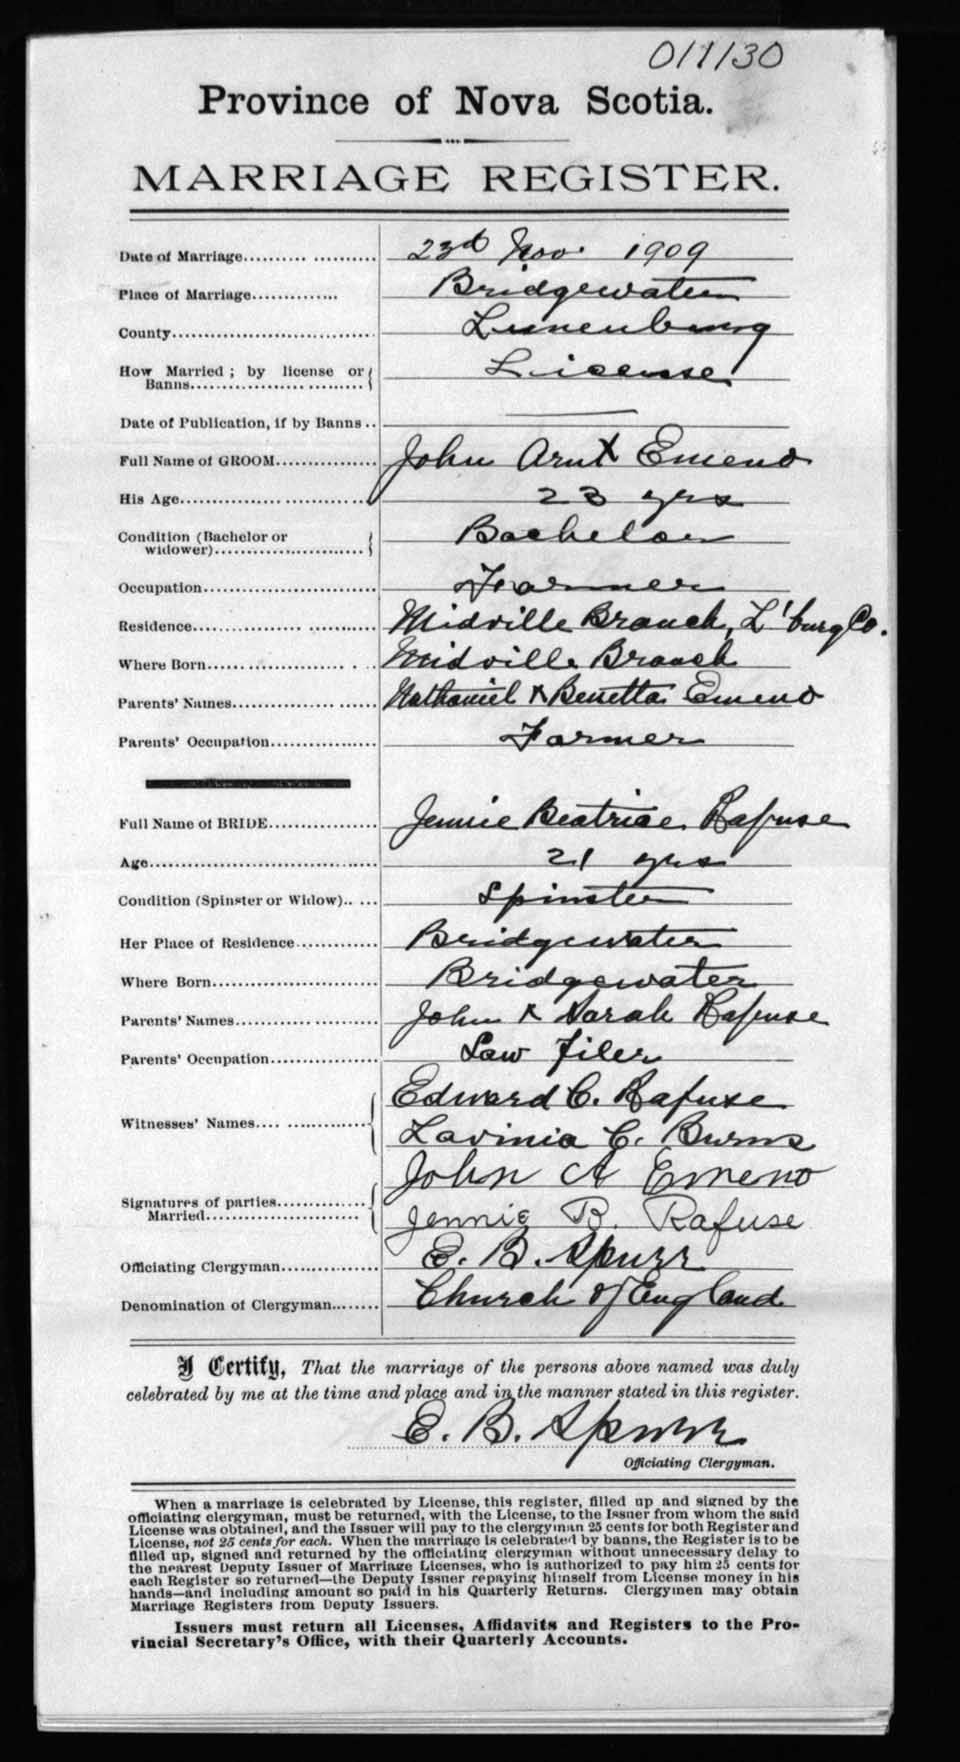 011130
Province of Nova Scotia.
MARRIAGE REGISTER.
Date of Marriage.......... .......... 23d Nov. 1909
Place of Marriage.............. Bridgewater
County................................. Lunenburg
How Married ; by license or
Banns................. ......... License
Date of Publication, if by Banns .. ——
Full Name of GROOM............... John Emeno
His Age................. ............. 23 yrs
Condition (Bachelor or
widower)......................... Bachelor
Occupation............................. Farmer
Residence................ ........... Midville Branch, L'burg Co.
Where Born...................... . .. Midville Branch
Parents' Names................. ...... Nathaniel & Benetta Emeno
Parents' Occupation.................. Farmer
Full Name of BRIDE................. Jennie Beatrice Rafuse
Age...................................... 21 yrs
Condition (Spinster or Widow).. ... Spinster
Her Place of Residence............. Bridgewater
Where Born............................ Bridgewater
Parents' Names............... ........ John & Sarah Rafuse
Parents' Occupation.................. Saw Filer
Edward C. Rafuse
Witnesses' Names.... ...............
Lavinia C. Burns
John A Emeno
Signatures of parties..............
Married.........................
Jennie B. Rafuse
Officiating Clergyman................ E. B. Spurr
Denomination of Clergyman........ Church of England
I Certify, That the marriage of the persons above named was duly
celebrated by me at the time and place and in the manner stated in this register.
E. B. Spurr
Officiating Clergyman.
When a marriage is celebrated by License, this register, filled up and signed by the
officiating clergyman, must be returned, with the License, to the Issuer from whom the said
License was obtained, and the Issuer will pay to the clergyman 25 cents for both Register and
License, not 25 cents for each. When the marriage is celebrated by banns, the Register is to be
filled up, signed and returned by the officiating clergyman without unnecessary delay to
the nearest Deputy Issuer of Marriage Licenses, who is authorized to pay him 25 cents for
each Register so returned—the Deputy Issuer repaying himself from License money in his
hands—and including amount so paid in his Quarterly Returns. Clergymen may obtain
Marriage Registers from Deputy Issuers.
Issuers must return all Licenses, Affidavits and Registers to the Pro-
vincial Secretary's Office, with their Quarterly Accounts.